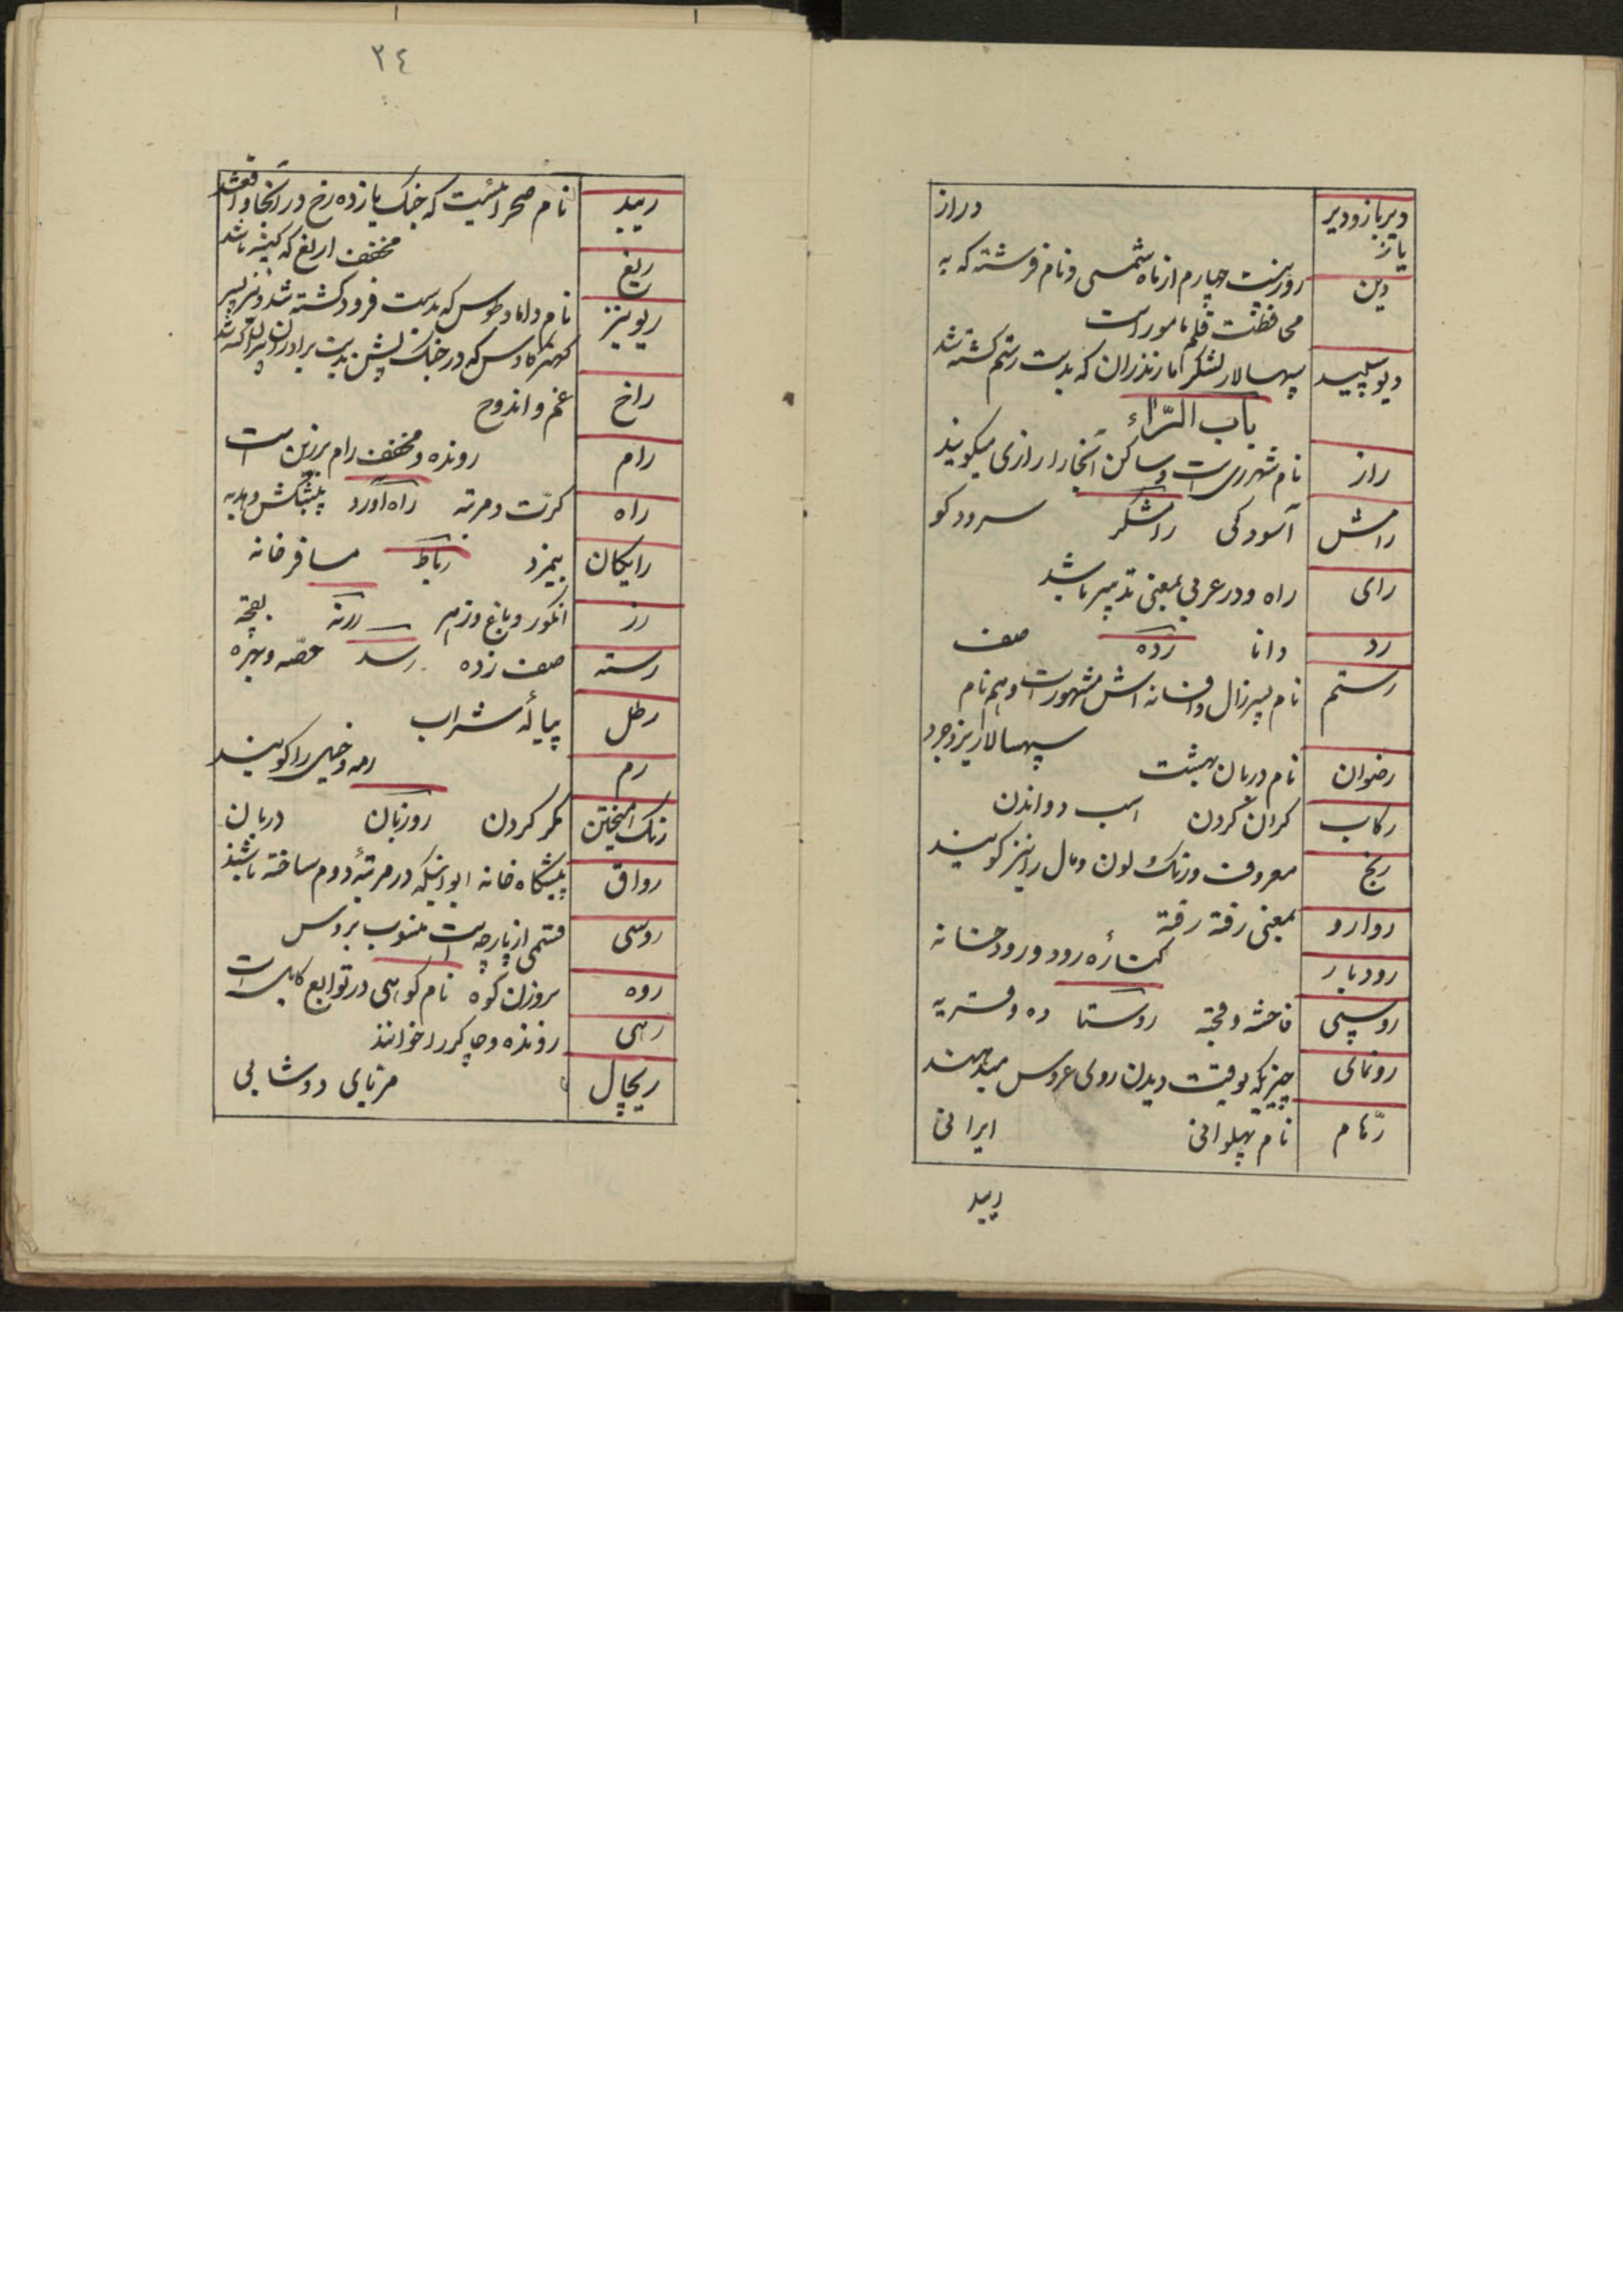 دیرباز و دیر
یاز
دراز
دین
روز بیست چهارم از ماه شمسی و نام فرشته که به
محافظت قلم مامور است
دیو سپید
سپهسالار لشکر مازندران که بدست رستم کشته شد
باب الرّاء
راز
نام شهر ری است و ساکن آنجا را رازی میکویند
رامش
آسودکی رامشکر سرودکو
رای
راه و در عربی بمعنی تدبیر باشد
رد
دانا رده صف
رستم
نام پسر زال و افسانه اش مشهور است و هم نام
سپهسالار یزدجرد
رضوان
نام دربان بهشت
رکاب
کران کردن اسب دواندن
رنج
معروف و رنک لون و مال را نیز کویند
روارو
بمعنی رفته رفته
رودبار
کنارهٔ رود و رودخانه
روسپی
فاحشه و قحبه روستا ده و قریه
رونمای
چیزیکه بوقت دیدن روی عروس میدهند
رهّام
نام پهلوانی ایرانی
ریبد
٣٤
ریبد
نام صحرائیست که جنک یازده رخ در آنجا واقعشد
ریغ
مخفف اریغ که کینه باشد
ریونیز
نام داماد طوس که بدست فرود کشته شد و نیز پسر
کهتر کاوس که در جنک پشن بدست برادران پیران کشته شد
راخ
غم و اندوح
رام
رونده و مخفف رام برزین است
راه
کرّت و مرتبه راه آورد پیشکش و هدیه
رایکان
بیمزد رباط مسافرخانه
رز
انکور و باغ و زهر رزمه بقچه
رسته
صف زده رسد حصّه و بهره
رطل
پیالهٔ شراب
رم
رمه و خیل را کویند
رنک آمیختن
مکر کردن روزبان دربان
رواق
پیشکاه خانه ایوانیکه در مرتبهٔ دوم ساخته باشند
روسی
قسمی از پارچه است منسوب بروس
روه
بروزن کوه نام کوهی در توابع کابل است
رهی
رونده و چاکر را خوانند
ریچال
مربای دوشابی